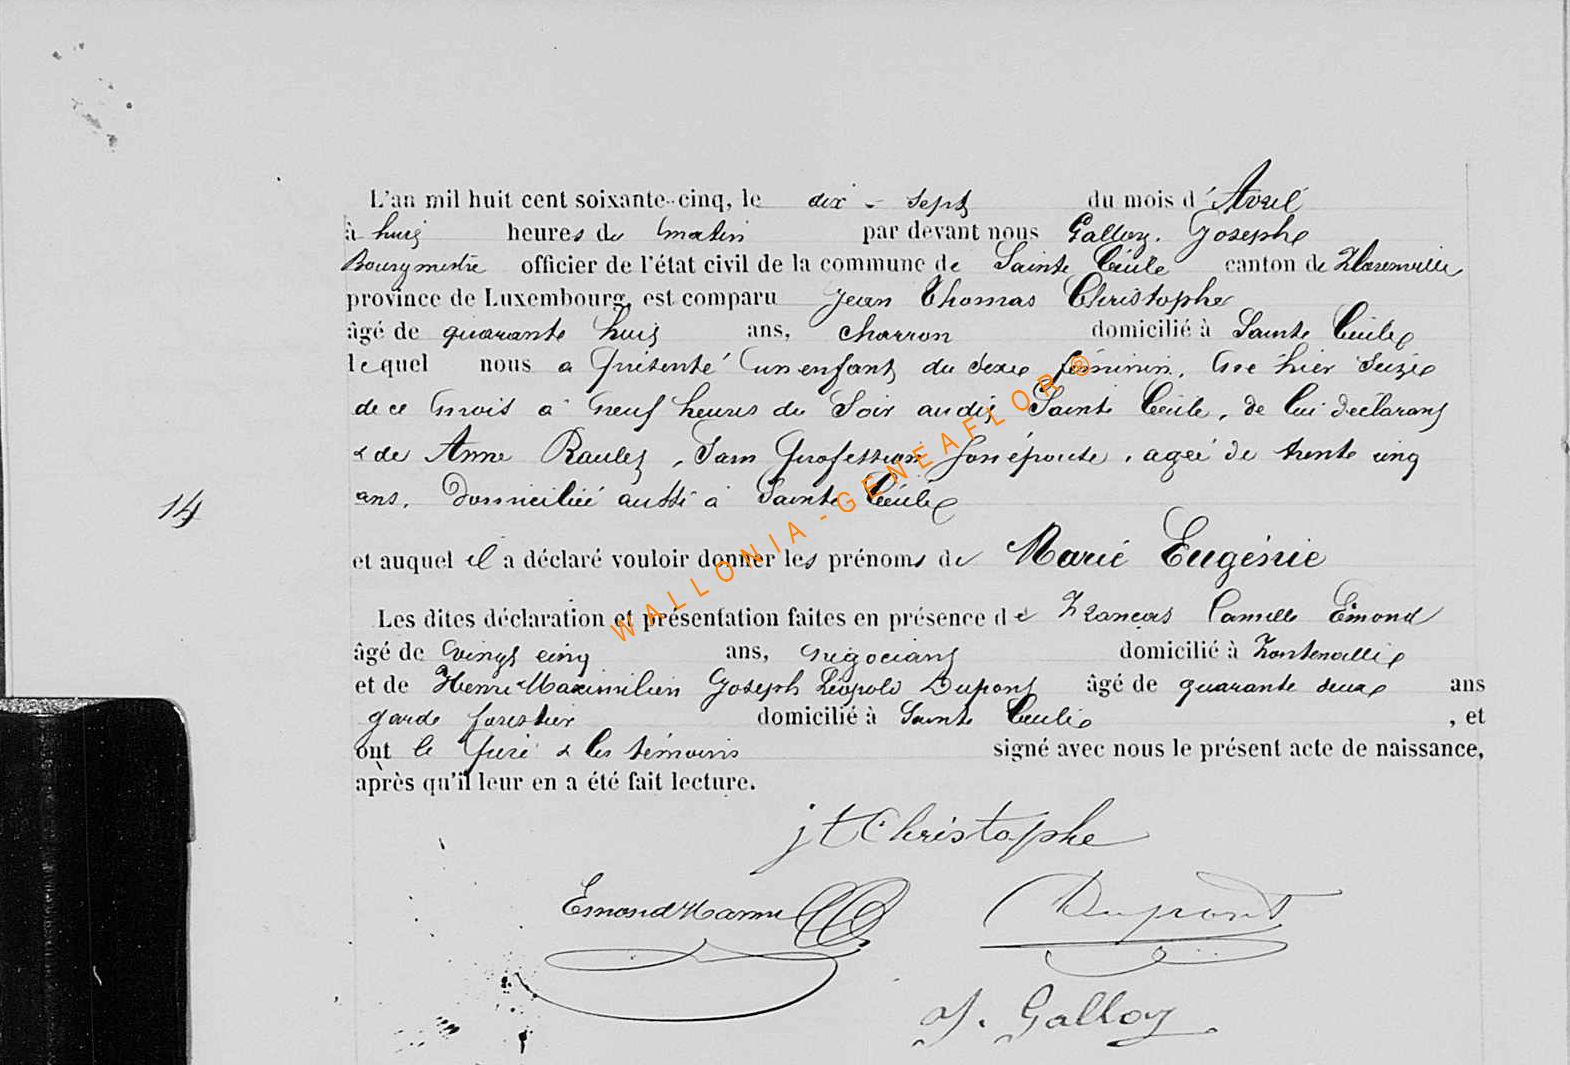 L'an mil huit cent soixante-cinq, le dix-sept du mois d'Avril
à huit heures du matin par devant nous Galloy Josephe
Bourgmestre officier de l'état civil de la commune de Sainte Cécile canton de Florenville
province de Luxembourg, est comparu Jean Thomas Christophe
âgé de quarante huit ans, charron domicilié à Sainte Cécile
lequel nous a présenté un enfant du sexe féminin, née hier seize
de ce mois à neuf heures du soir audit Sainte Cécile, de lui déclarant
& de Anne Raulet, sans profession son épouse, agée de trente cinq
ans, domiciliée aussi à Sainte Cécile
14
et auquel il a déclaré vouloir donner les prénoms de Marie Eugénie
Les dites déclaration et présentation faites en présence de François Camille Emond
âgé de vingt cinq ans, négociant domicilié à Fontenoille
et de Henri Maximilien Joseph Léopold Dupont âgé de quarante deux ans
garde forestier domicilié à Sainte Cécile, et
ont le père & les témoins signé avec nous le présent acte de naissance,
après qu'il leur en a été fait lecture.
jt Christophe
Emond Dupont
J. Galloy
WALLONIA - GENEAFLOR ®